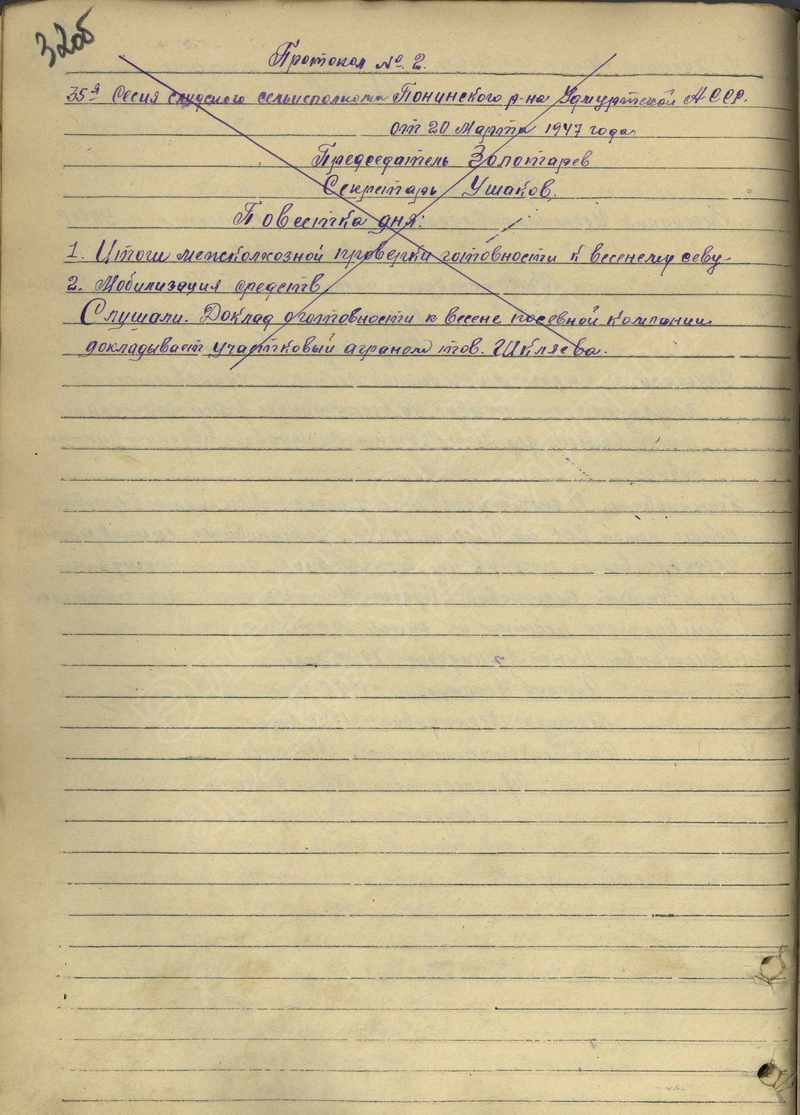 32об
Протокол № 2.
35й Сесия сельисполкома Понинского р-на Удмуртской АССР.
от 20 Марта 1947 года.
Председатель Золотарев
Секретарь Ушаков.
Повестка дня:
1. Итоги межколхозной проверки готовности к весенему севу
2. Мобилизация средств
Слушали. Доклад о готовности к весене посевной компании
докладывает участковый аграном тов. Шкляева.